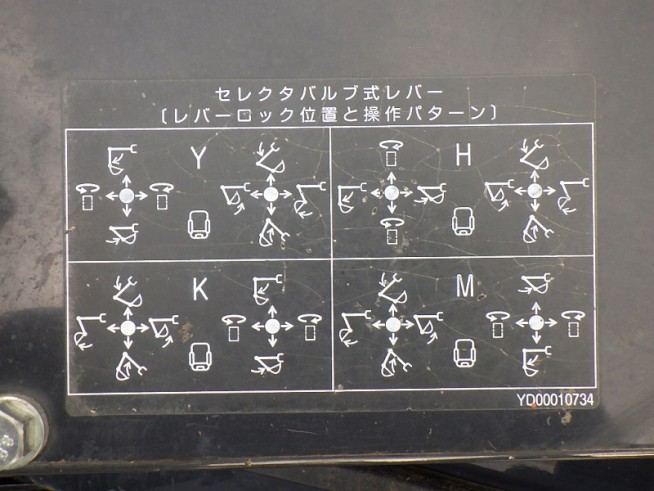 セレクタバルブ式レバー
〔レバーロック位置と操作パターン〕
Y
H
K
M
YD00010734